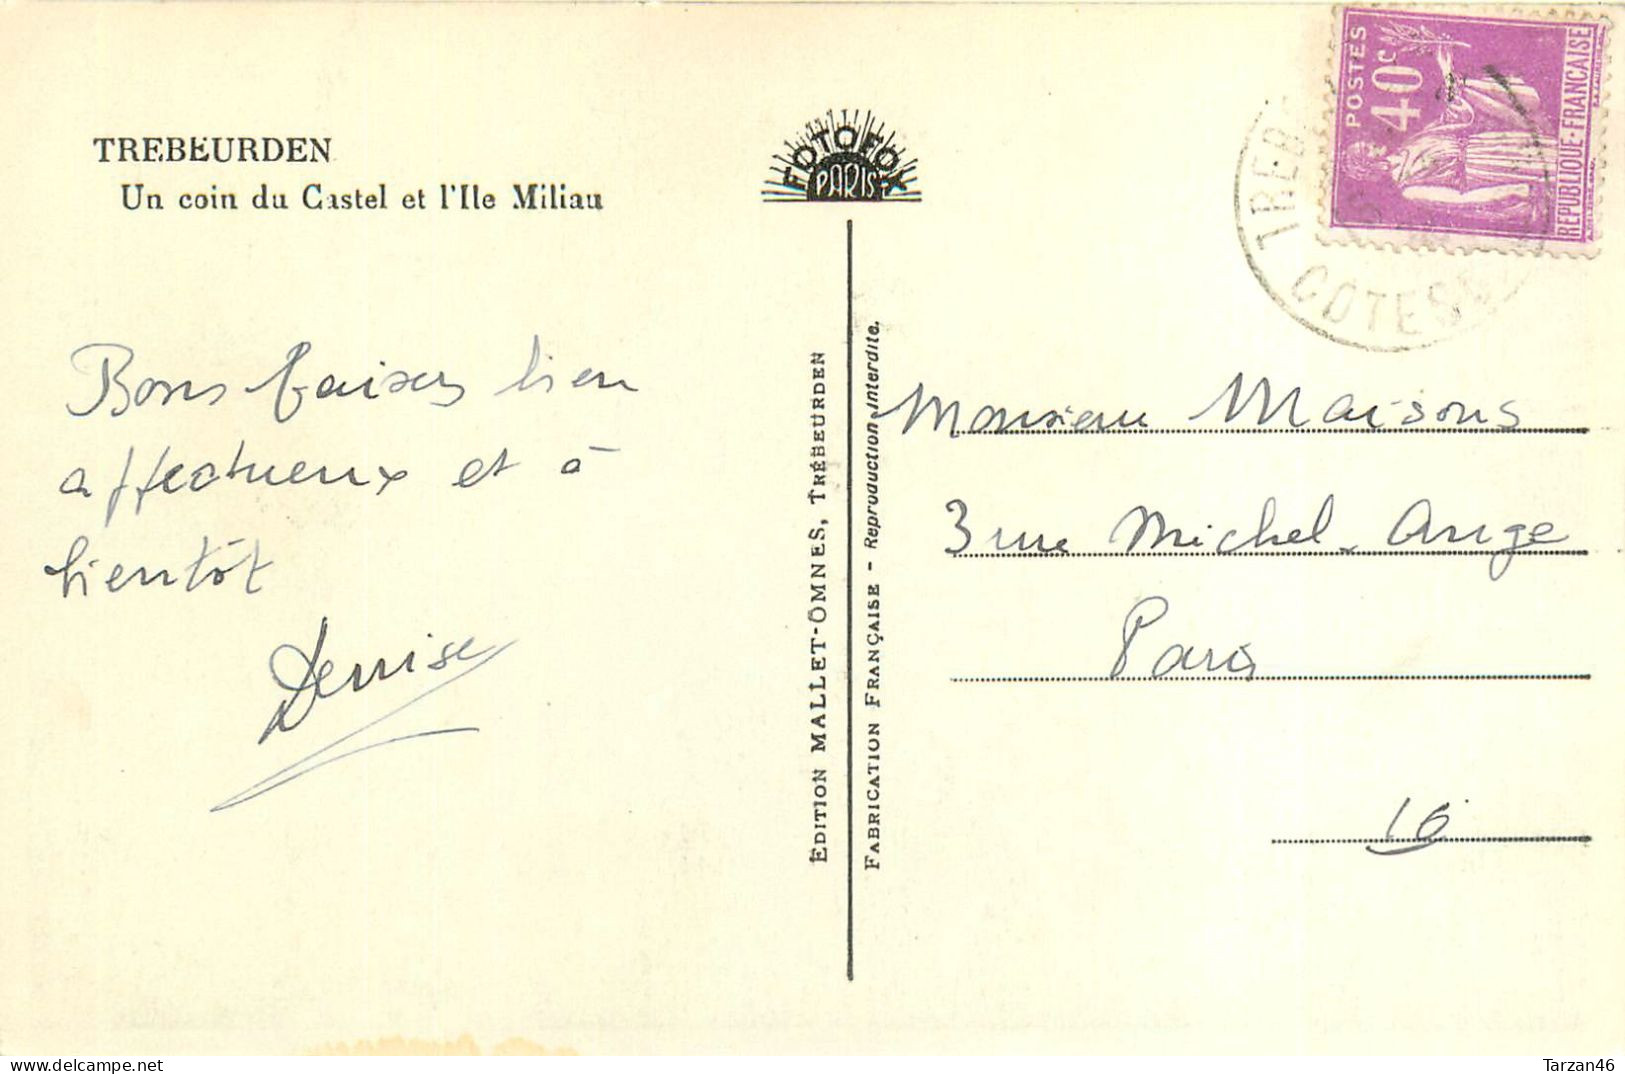 TREBEURDEN
Un coin du Castel et l'Ile Miliau
FOTOFOX
PARIS
POSTES
40c
REPUBLIQUE-FRANCAISE
COTES
Bons baisers bien
affectueux et à
bientôt
Denise
EDITION MALLET-OMNES, TRÉBEURDEN
FABRICATION FRANÇAISE - Reproduction Interdite.
Monsieur Maisons
3 rue Michel-Ange
Paris
16
delcampe.net
Tarzan46